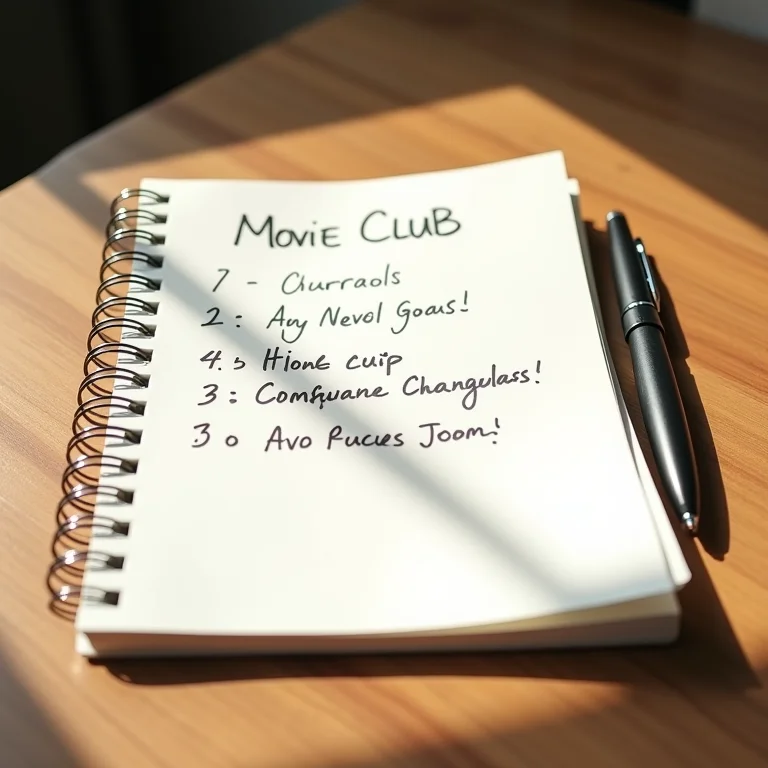 MOVIE CLUB
7 - Churraols
2 : Any Nevol Goas!
4. s Hione cuip
3 : Comfquane Changulass!
3 o Avo Rucues Joom!